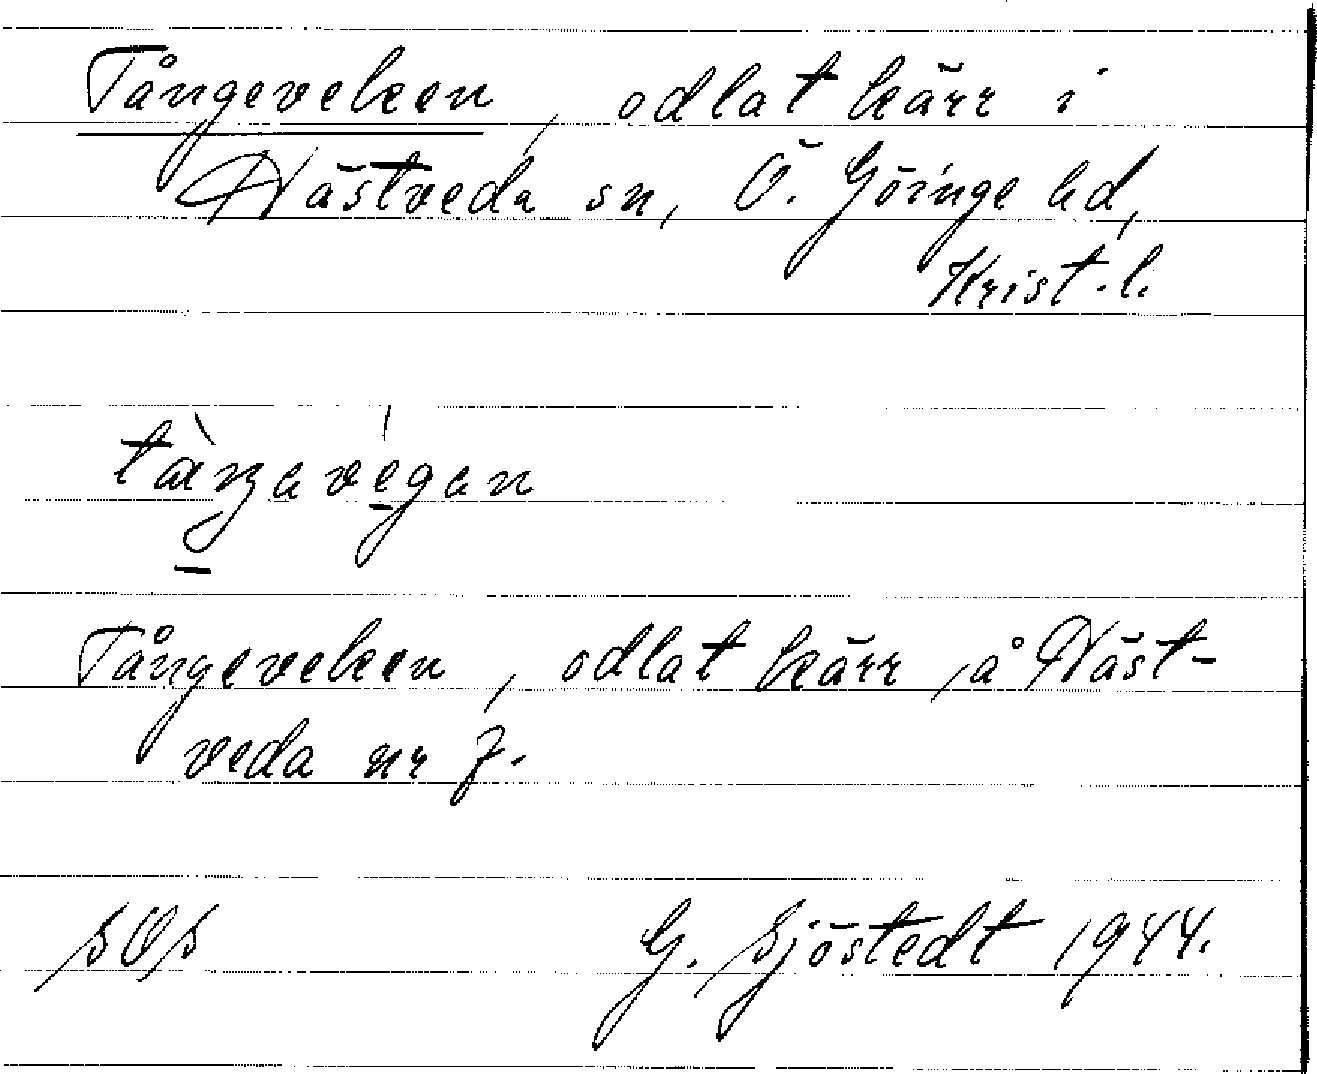 Tångeveken, odlat kärr i
Nästveda sn, Ö. Göinge hd,
Krist. l.
Tångeveken, odlat kärr å Näst-
veda nr 7.
SOS G. Sjöstedt 1944.